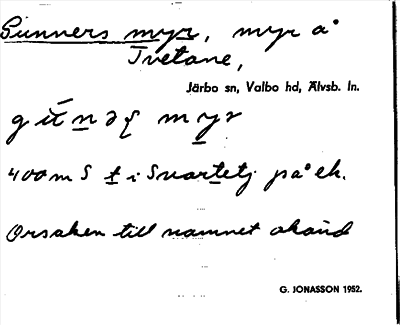 Gunners myr, myr å
Tvetane,
Järbo sn, Valbo hd, Älvsb. ln.
myr
400 m S t i Svartetj på ek.
Orsaken till namnet okänd
G. JONASSON 1952.